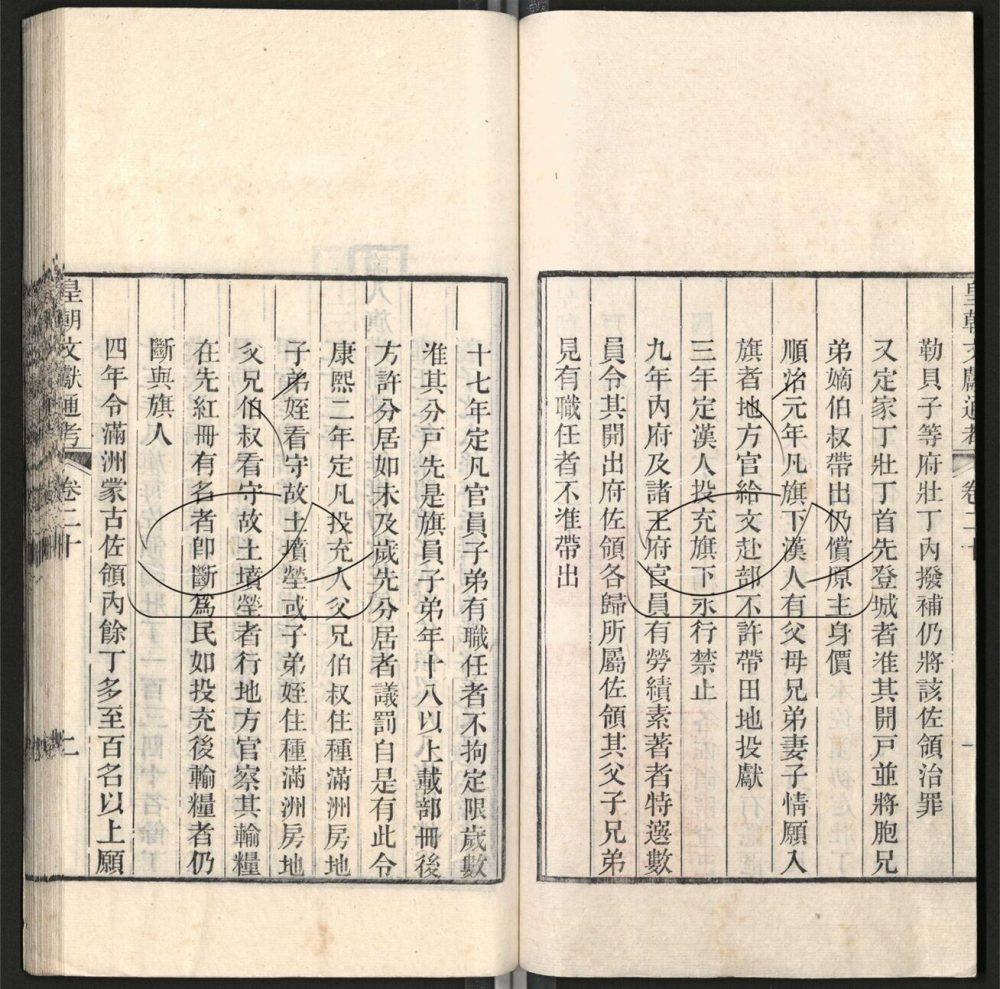 皇朝文獻通考 卷二十 一
勒貝子等府壯丁內撥補仍將該佐領治罪
又定家丁壯丁首先登城者准其開戸並將胞兄
弟嫡伯叔帶出仍償原主身價
順治元年凡旗下漢人有父母兄弟妻子情願入
旗者地方官給文赴部不許帶田地投獻
三年定漢人投充旗下永行禁止
九年內府及諸王府官員有勞績素著者特選數
員令其開出府佐領各歸所屬佐領其父子兄弟
見有職任者不准帶出
十七年定凡官員子弟有職任者不拘定限歲數
准其分戸先是旗員子弟年十八以上載部冊後
方許分居如未及歲先分居者議罰自是有此令
康熙二年定凡投充人父兄伯叔住種滿洲房地
子弟姪看守故土墳塋或子弟姪住種滿洲房地
父兄伯叔看守故土墳塋者行地方官察其輸糧
在先紅冊有名者卽斷爲民如投充後輸糧者仍
斷與旗人
四年令滿洲蒙古佐領內餘丁多至百名以上願
皇朝文獻通考 卷二十 二